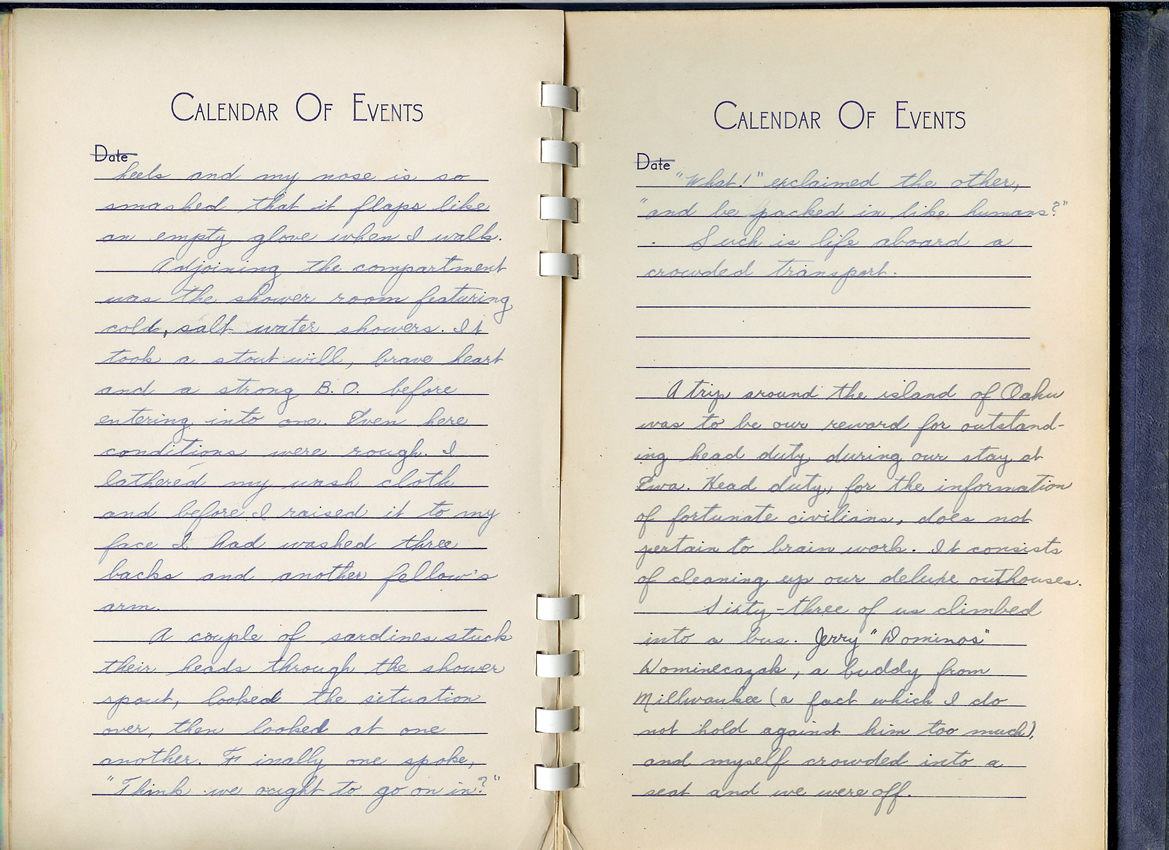 CALENDAR OF EVENTS
Date
heels and my nose is so
smashed that it flaps like
an empty glove when I walk.
Adjoining the compartment
was the shower room featuring
cold, salt water showers. It
took a stout will, brave heart
and a strong B.O. before
entering into one. Even here
conditions were rough. I
lathered my wash cloth
and before I raised it to my
face I had washed three
backs and another fellow's
arm.
A couple of sardines stuck
their heads through the shower
spout, looked the situation
over, then looked at one
another. Finally one spoke,
"Think we ought to go on in?"
CALENDAR OF EVENTS
Date
"What!" exclaimed the other,
"and be packed in like humans?"
Such is life aboard a
crowded transport.
A trip around the island of Oahu
was to be our reward for outstand-
ing head duty during our stay at
Ewa. Head duty, for the information
of fortunate civilians, does not
pertain to brain work. It consists
of cleaning up our deluxe outhouses.
Sixty-three of us climbed
into a bus. Jerry "Dominos"
Womineczak, a buddy from
Millwaukee (a fact which I do
not hold against him too much),
and myself crowded into a
seat and we were off.